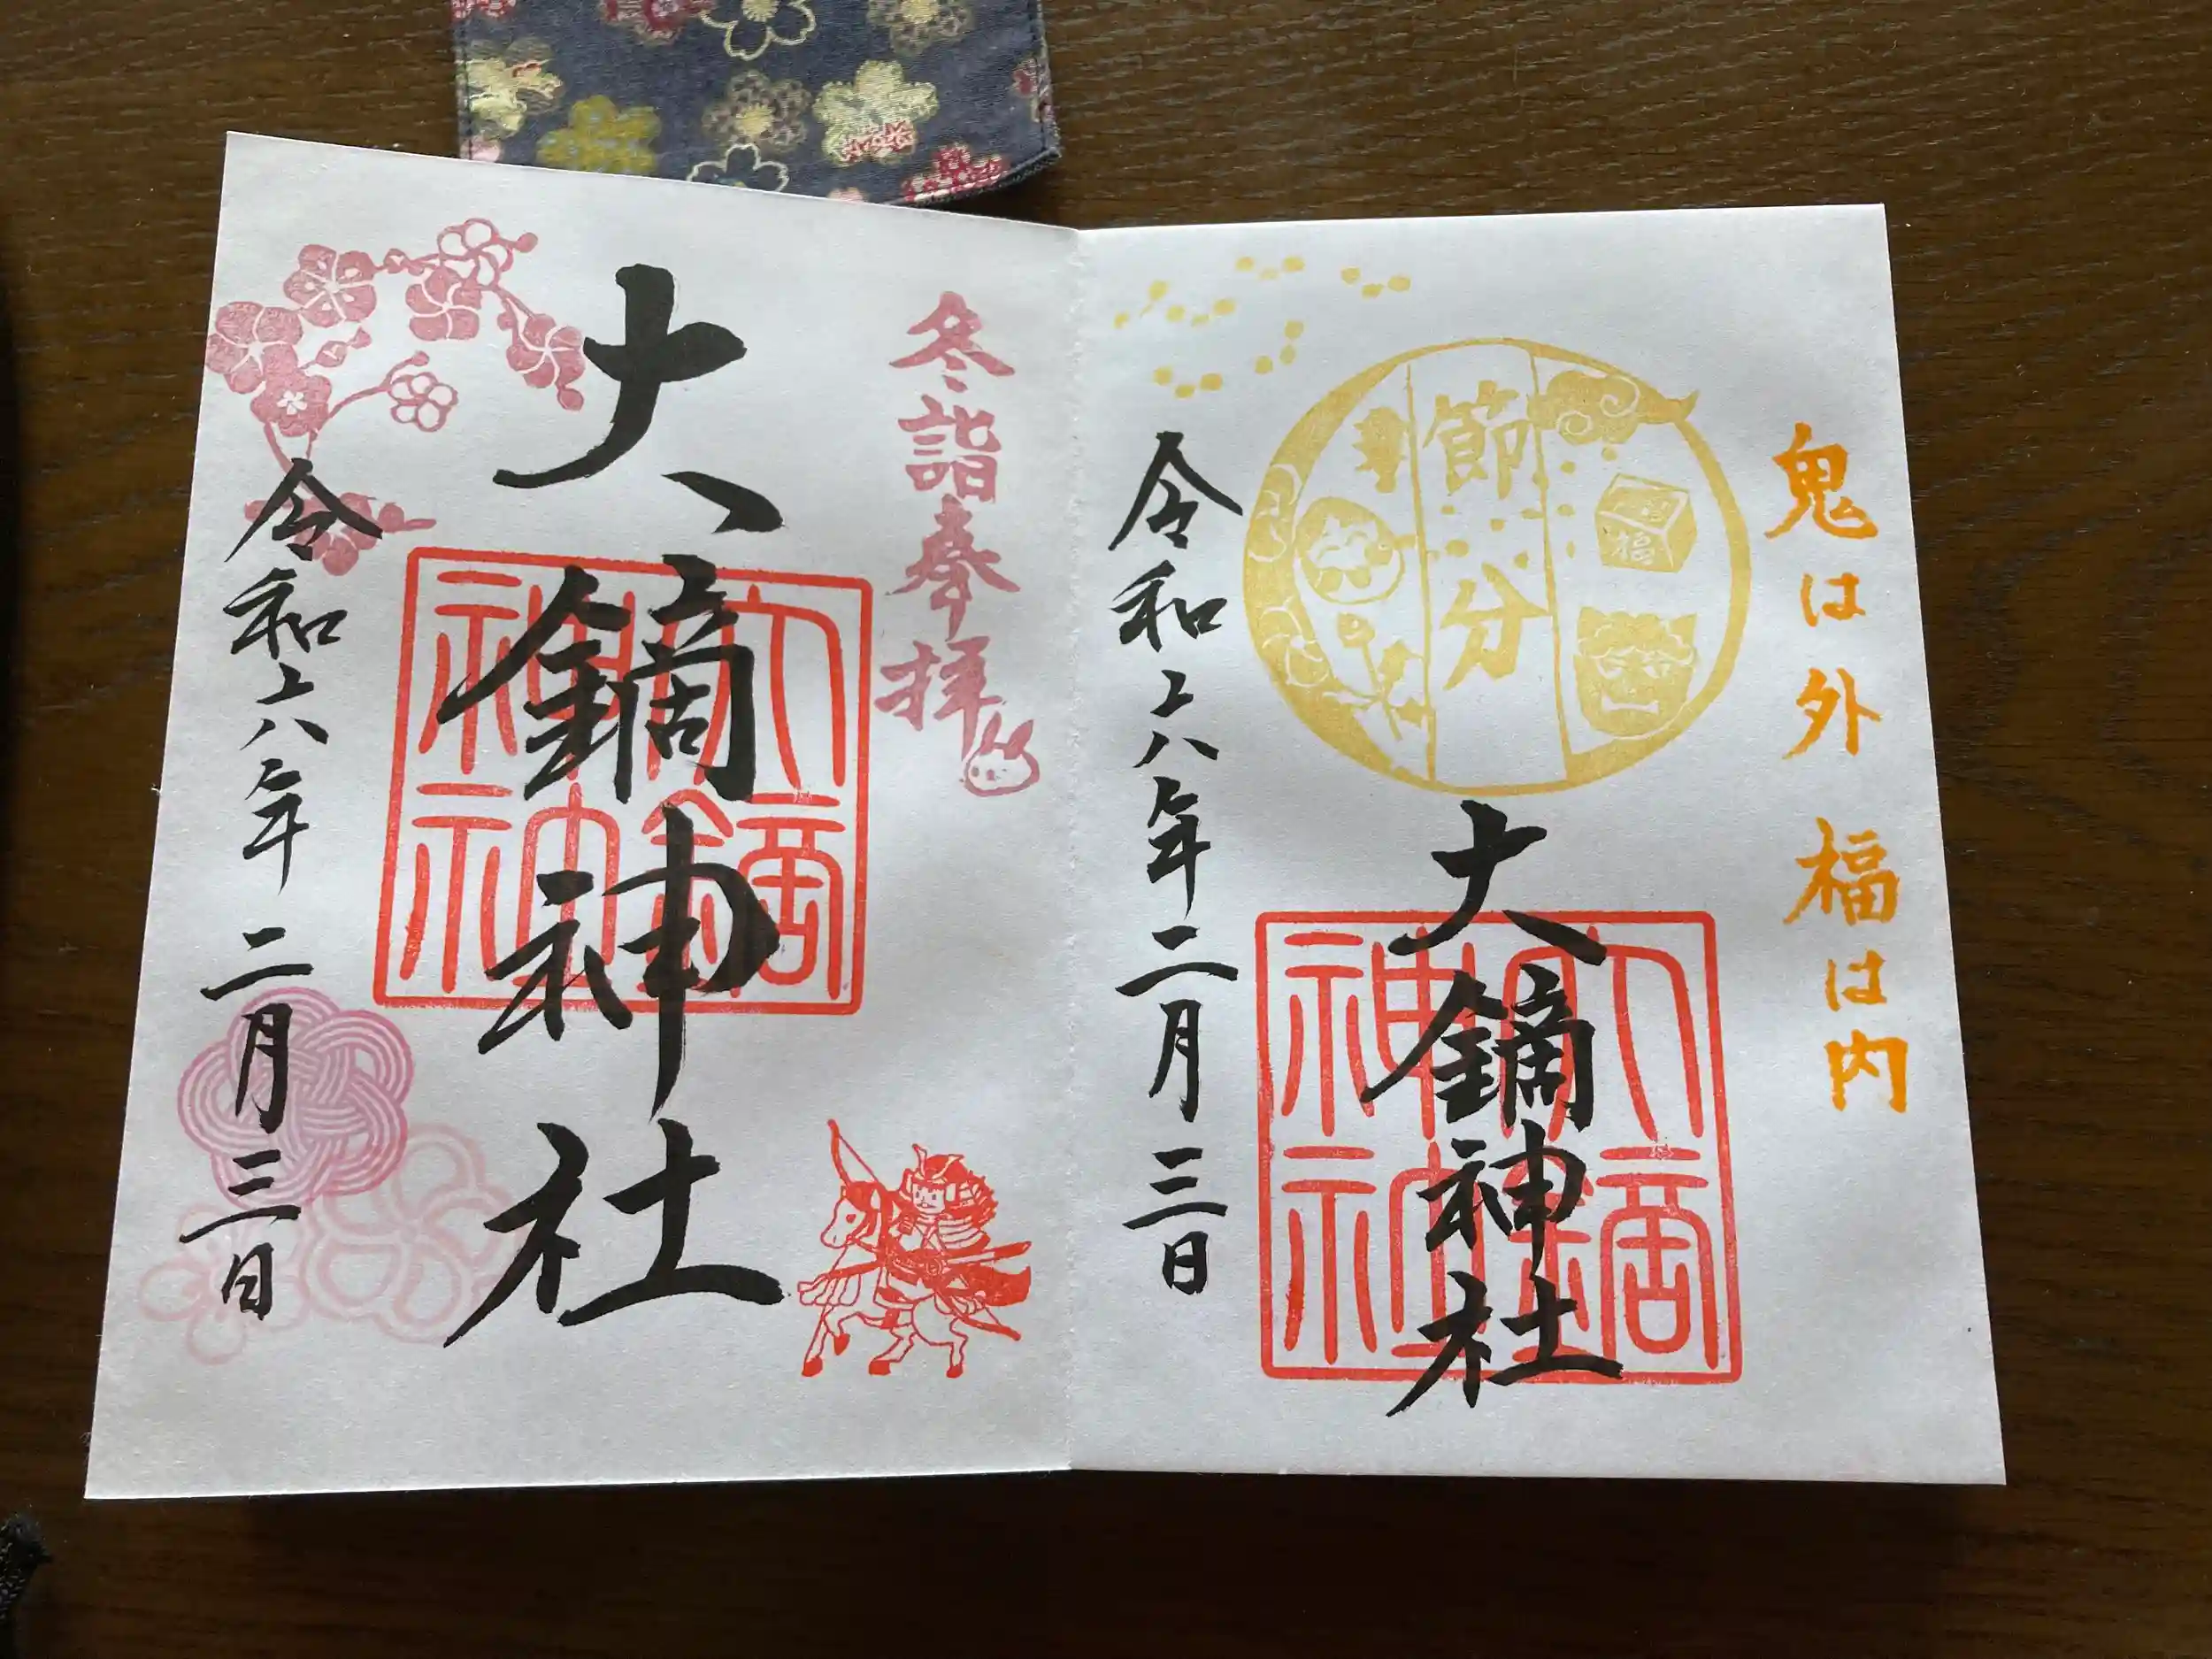 鬼は外 福は内
節分
福
大鏑神社
大鏑
神社
令和六年二月三日
冬詣奉拝
大鏑神社
大鏑
神社
令和六年二月三日